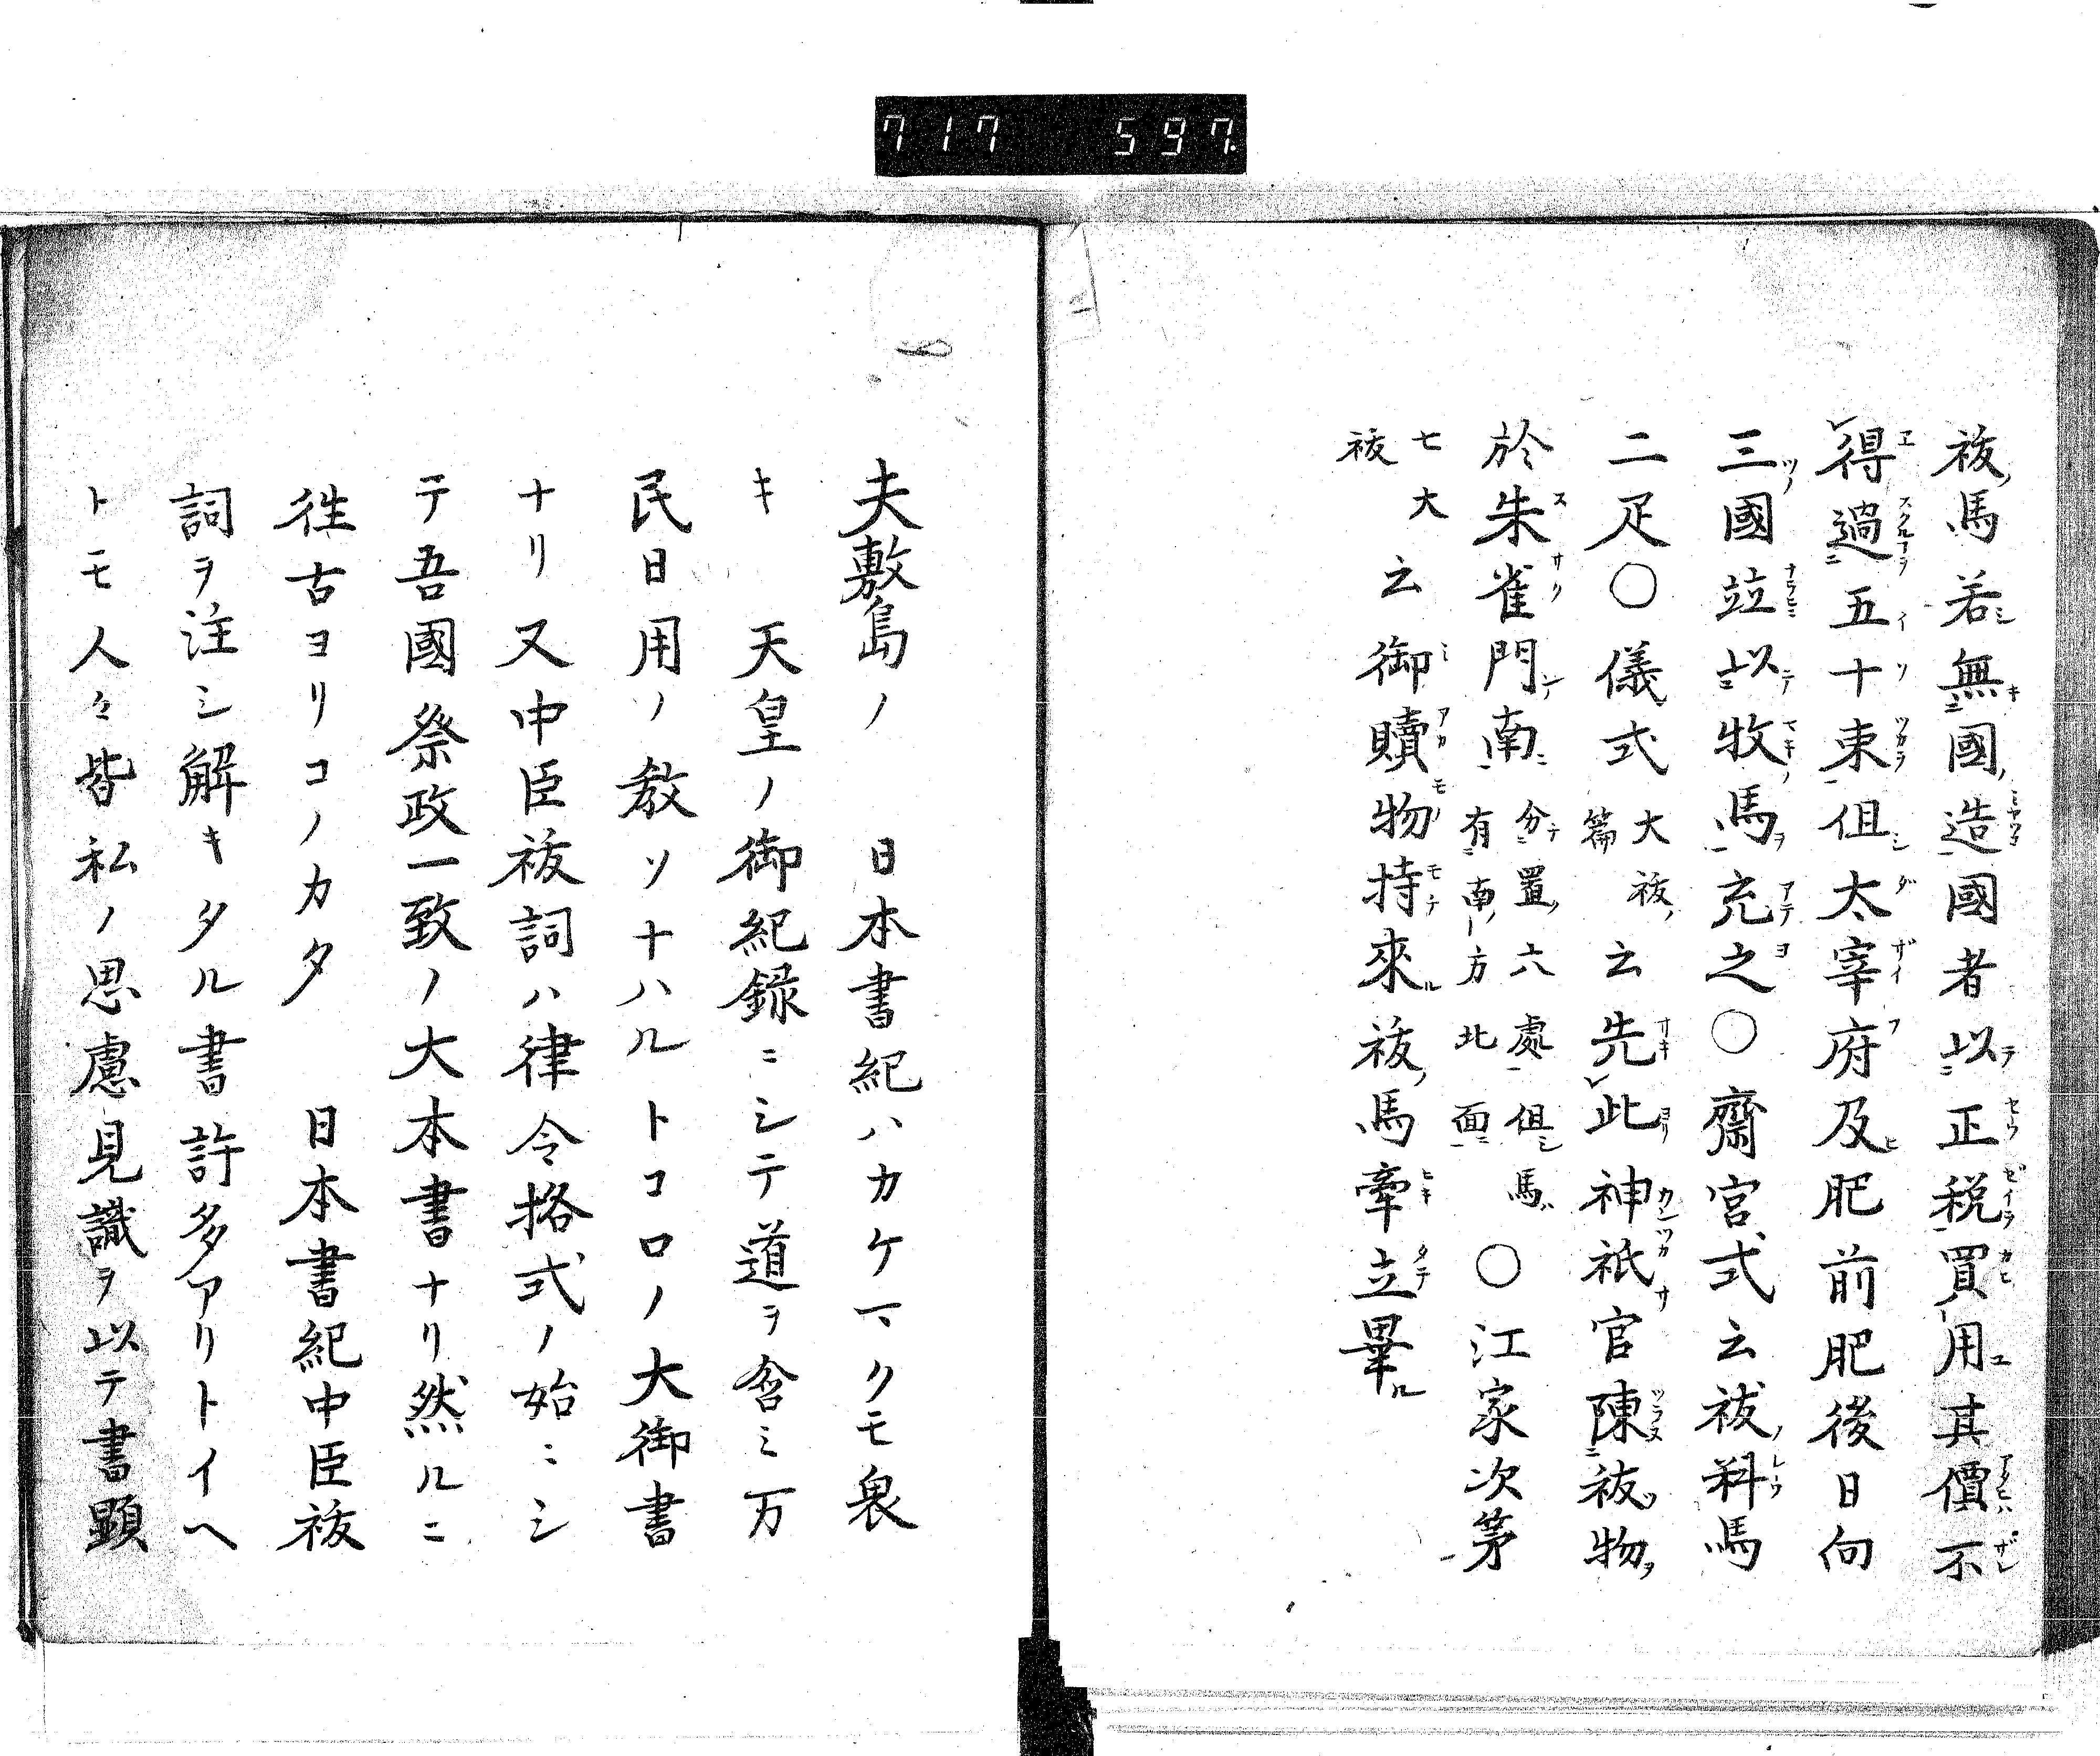 717 597
祓馬若無國造國者以正税買用其價不
得過五十束但太宰府及肥前肥後日向
三國竝以牧馬充之〇齋宮式云祓料馬
二疋〇儀式大祓篇云先此神祇官陳祓物
於朱雀門南分置六處但馬有南方北面〇江家次第
七大祓云御贖物持來祓馬牽立畢
夫敷島ノ　日本書紀ハカケマクモ畏
キ　天皇ノ御紀録ニシテ道ヲ含ミ万
民日用ノ教ソナハルトコロノ大御書
ナリ又中臣祓詞ハ律令格式ノ始ニシ
テ吾國祭政一致ノ大本書ナリ然ルニ
徃古ヨリコノカタ　日本書紀中臣祓
詞ヲ注シ解キタル書許多アリトイヘ
トモ人々皆私ノ思慮見識ヲ以テ書顕